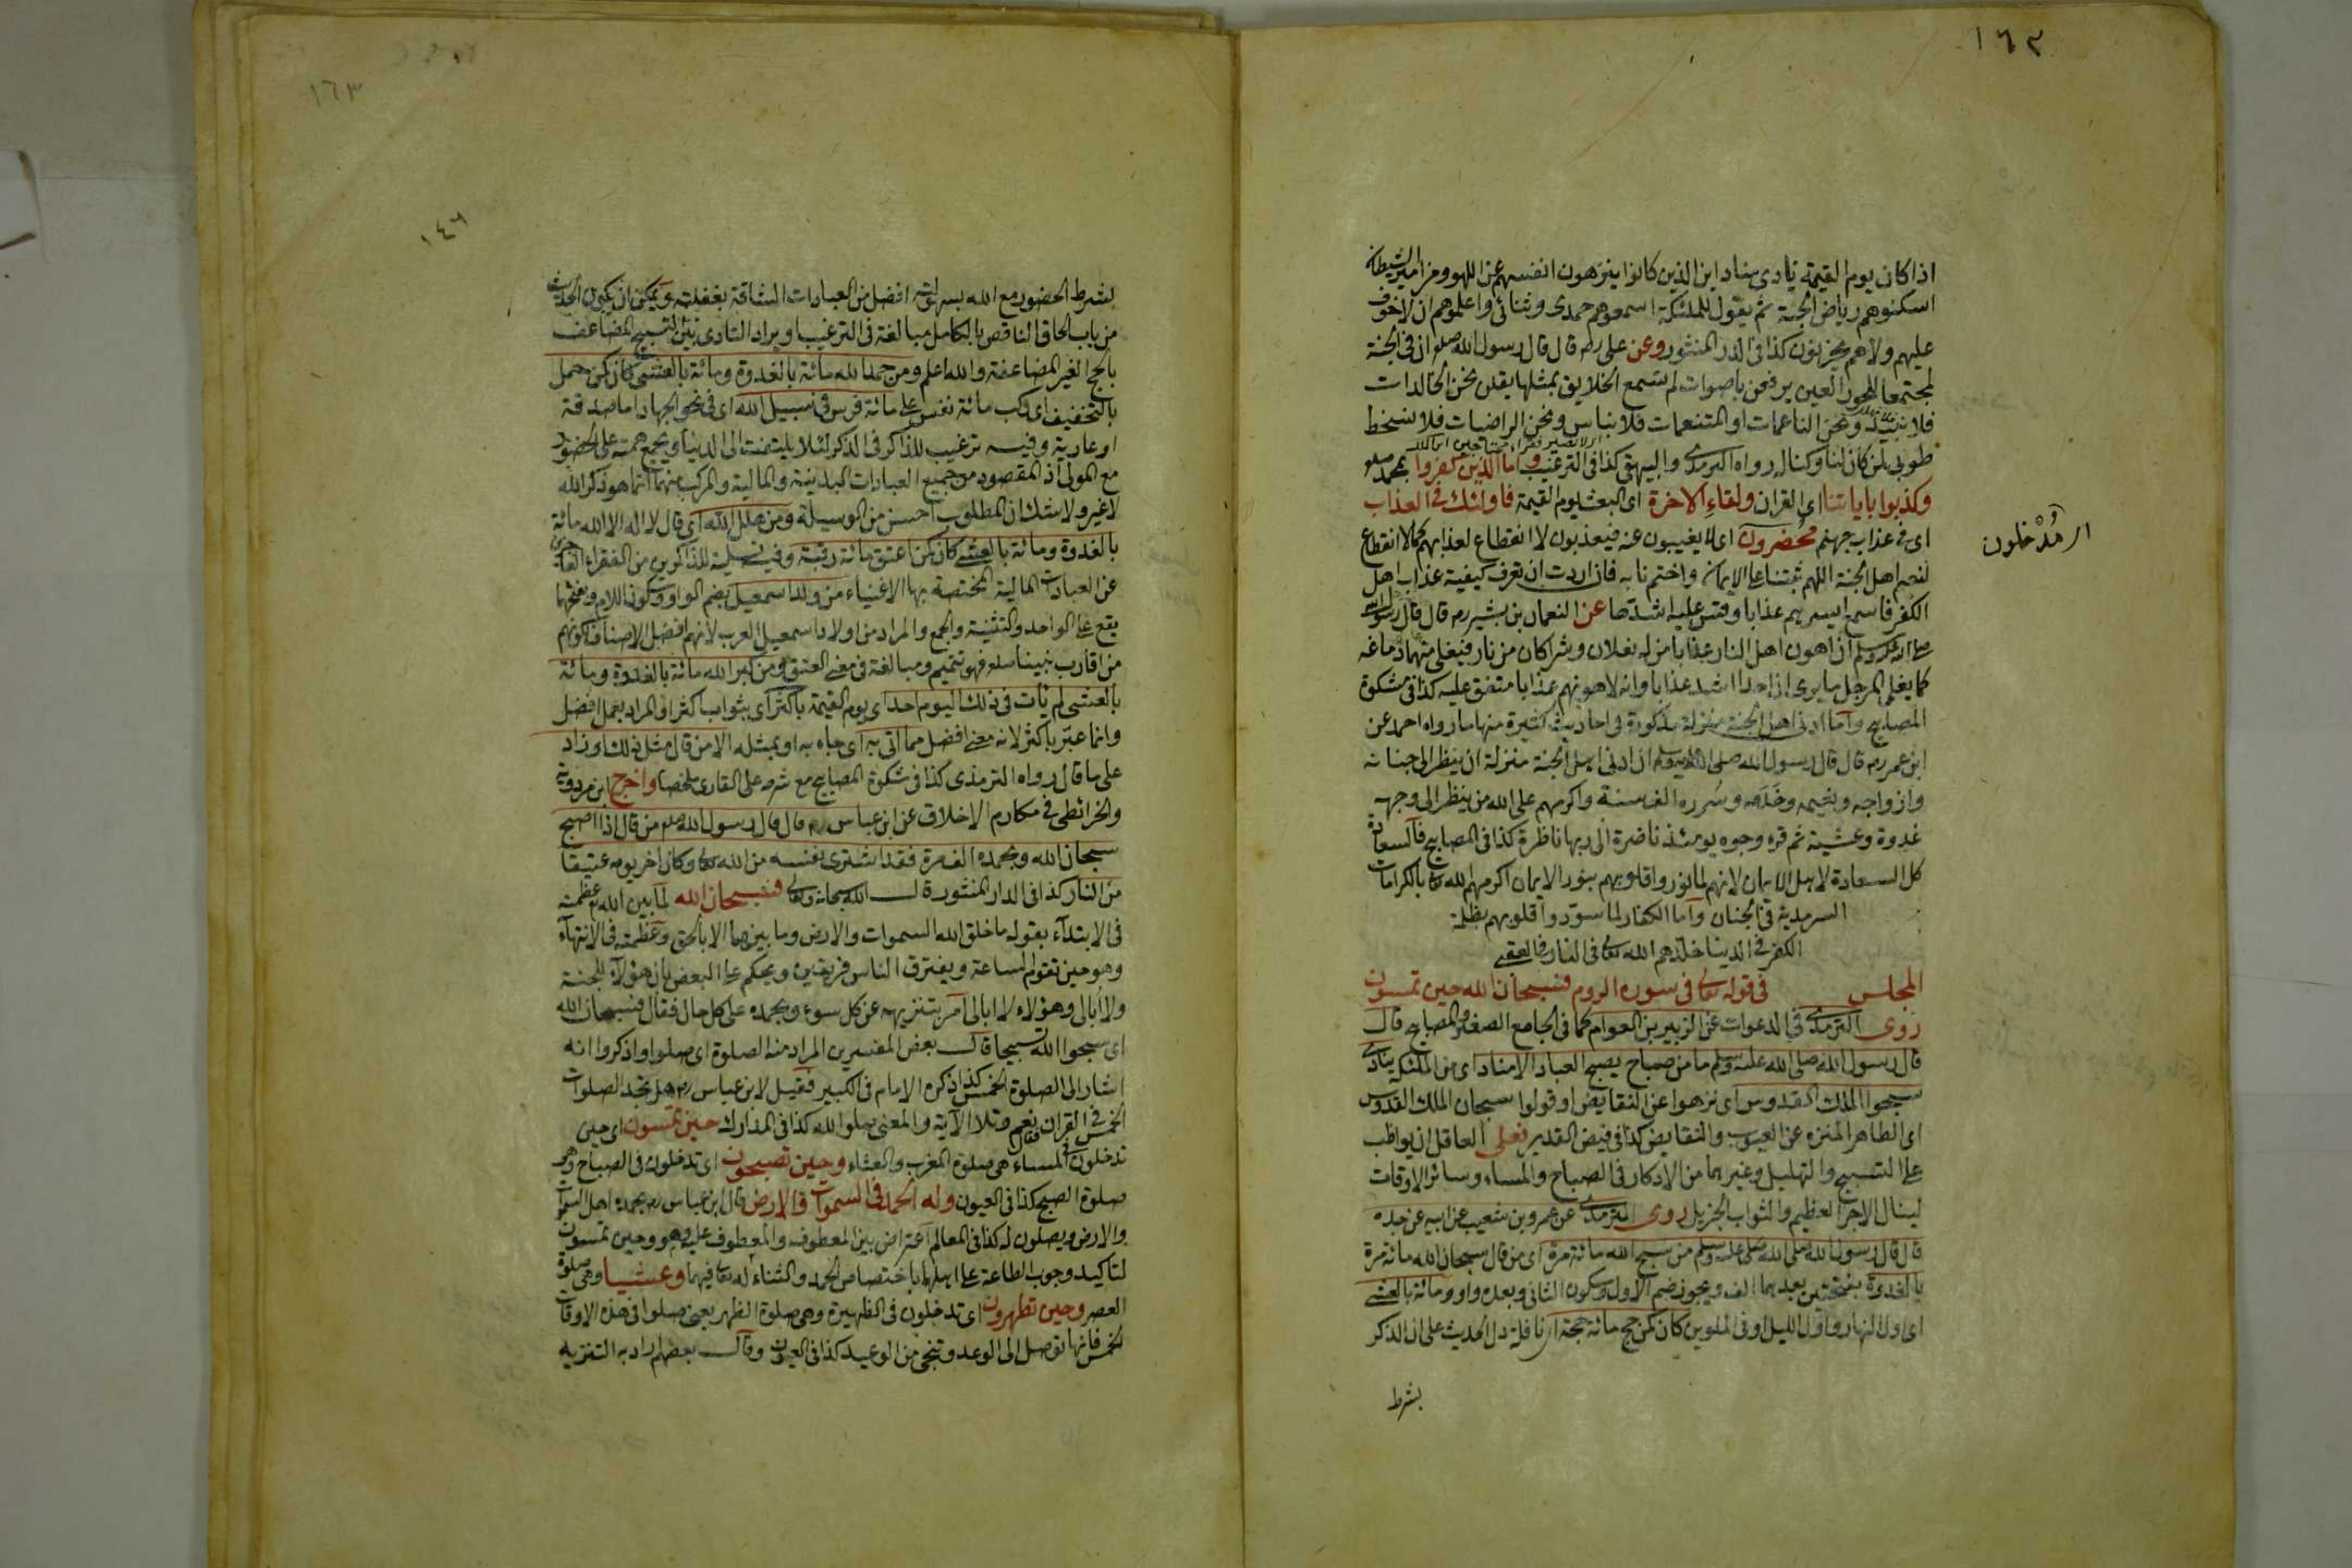 ١٦٢
اذا كان يوم القيمة ينادى مناد اين الذين كانوا ينزهون انفسهم عن اللهو ومزامير الشيطان
اسكنوهم رياض الجنة ثم يقول للملئكة اسمعوهم حمدى وثنائى واعلموهم ان لا خوف
عليهم ولا هم يحزنون كذا فى الدر المنثور وعن على رضه قال قال رسول الله صلعم ان فى الجنة
لمجتمعا للحور العين يرفعن باصوات لم تسمع الخلايق بمثلها يقلن نحن الخالدات
فلا نبيد ونحن الناعمات او المتنعمات فلا نباس ونحن الراضيات فلا نسخط
طوبى لمن كان لنا وكنا له رواه الترمذى والبيهقى كذا فى الترغيب واما الذين كفروا بمحمد صلعم
وكذبوا باياتنا اى القران ولقاء الاخرة اى البعث يوم القيمة فاولئك فى العذاب
اى فى عذاب جهنم محضرون اى لا يغيبون عنه فيعذبون لا انقطاع لعذابهم كما لا انقطاع
اى مُدْخلون
لنعيم اهل الجنة اللهم ثبتنا على الايمان واختم لنا به فان اردت ان تعرف كيفية عذاب اهل
الكفر فاسمع ايسرهم عذابا وقس عليه اشدها عن النعمان بن بشير رضه قال قال رسول الله
صلى الله عليه وسلم ان اهون اهل النار عذابا من له نعلان وشراكان من نار فيغلى منهما دماغه
كما يغلى المرجل ما يرى ان احدا اشد عذابا وانه لاهونهم عذابا متفق عليه كذا فى مشكوة
المصابيح واما ادنى اهل الجنة منزلة مذكورة فى احاديث كثيرة منها ما رواه احمد عن
ابن عمر رضه قال قال رسول الله صلى الله عليه وسلم ان ادنى اهل الجنة منزلة ان ينظر الى جنانه
وازواجه ونعيمه وخَدَمه وسُرره الف سنة واكرمهم على الله من ينظر الى وجهه
غدوة وعشية ثم قرء وجوه يومئذ ناضرة الى ربها ناظرة كذا فى المصابيح فالسعادة
كل السعادة لاهل الايمان لانهم لما نوروا قلوبهم بنور الايمان اكرمهم الله تعالى بالكرامات
السرمدية فى الجنان واما الكفار لما سوّدوا قلوبهم بظلمة
الكفر فى الدنيا خلّدهم الله تعالى فى النار فى العقبى
المجلس فى قوله تعالى فى سورة الروم فسبحان الله حين تمسون
روى الترمذى فى الدعوات عن الزبير بن العوام كما فى الجامع الصغير والمصابيح قال
قال رسول الله صلى الله عليه وسلم ما من صباح يصبح العباد الا مناد اى من الملئكة ينادى
سبحوا الملك القدوس اى نزهوا عن النقايض او قولوا سبحان الملك القدوس
اى الطاهر المنزه عن العيوب والنقايض كذا فى فيض القدير فعلى العاقل ان يواظب
على التسبيح والتهليل وغيرهما من الاذكار فى الصباح والمساء وسائر الاوقات
لينال الاجر العظيم والثواب الجزيل روى الترمذى عن عمرو بن شعيب عن ابيه عن جده
قال قال رسول الله صلى الله عليه وسلم من سبح الله مائة مرة اى من قال سبحان الله مائة مرة
بالغدوة بفتحتين بعدهما الف ويجوز ضم الاول وسكون الثانى وبعده واو ومائة بالعشى
اى اول النهار واول الليل او فى الملوين كان كمن حج مائة حجة اى نافلة دل الحديث على ان الذكر
بشرط
١٦٣
١٤٦
بشرط الحضور مع الله بسهولته افضل من العبادات الشاقة بغفلته ويمكن ان يكون الحديث
من باب الحاق الناقص بالكامل مبالغة فى الترغيب او يراد التساوى بين التسبيح المضاعف
بالحج الغير المضاعفة والله اعلم ومن حمد الله مائة بالغدوة ومائة بالعشى كان كمن حمل
بالتخفيف اى ركب مائة نفس على مائة فرس فى سبيل الله اى فى نحو الجهاد اما صدقة
او عارية وفيه ترغيب للذاكر فى الذكر لئلا يلتفت الى الدنيا ويجمع همته على الحضور
مع المولى اذ المقصود من جميع العبادات البدنية والمالية والمركب منهما انما هو ذكر الله
لا غير ولا شك ان المطلوب احسن من الوسيلة ومن هلل الله اى قال لا اله الا الله مائة
بالغدوة ومائة بالعشى كان كمن اعتق مائة رقبة وفيه تسلية للذاكرين من الفقراء العاجزين
عن العبادات المالية المختصة بها الاغنياء من ولد اسمعيل بضم الواو وسكون اللام وبفتحهما
يقع على الواحد والتثنية والجمع والمراد من اولاد اسمعيل العرب لانهم افضل الاصناف لكونهم
من اقارب نبينا صلعم فهو تتميم ومبالغة فى معنى العتق ومن كبر الله مائة بالغدوة ومائة
بالعشى لم يات فى ذلك اليوم احد اى يوم القيمة باكثر اى بثواب اكثر او المراد بعمل افضل
وانما عبّر باكثر لانه معنى افضل مما اتى به اى جاء به او بمثله الا من قال مثل ذلك او زاد
على ما قال رواه الترمذى كذا فى مشكوة المصابيح مع شرحه على القارى ملخصا واخرج ابن مردوية
والخرائطى فى مكارم الاخلاق عن ابن عباس رضه قال قال رسول الله صلعم من قال اذا اصبح
سبحان الله وبحمده الف مرة فقد اشترى نفسه من الله تعالى وكان اخر يومه عتيقا
من النار كذا فى الدر المنثور قال الله سبحانه وتعالى فسبحان الله لما بين الله تع عظمته
فى الابتدآء بقوله ما خلق الله السموات والارض وما بينهما الا بالحق وعظمته فى الانتهآء
وهو حين تقوم الساعة ويفترق الناس فريقين ويحكم على البعض بان هؤلآء للجنة
ولا ابالى وهؤلاء لا ابالى امر بتنزيهه عن كل سوء وبحمده على كل حال فقال فسبحان الله
اى سبحوا الله تسبيحا قال بعض المفسرين المراد منه الصلوة اى صلوا واذكروا انه
اشار الى الصلوة الخمس كذا ذكره الامام فى الكبير فقيل لابن عباس رضه هل تجد الصلوات
الخمس فى القران فقال نعم وتلا الآية والمعنى صلوا لله كذا فى المدارك حين تمسون اى حين
تدخلون فى المساء هى صلوة المغرب والعشاء وحين تصبحون اى تدخلون فى الصباح وهو
صلوة الصبح كذا فى العيون وله الحمد فى السموات والارض قال ابن عباس رضه يحمده اهل السموات
والارض ويصلون له كذا فى المعالم اعتراض بين المعطوف والمعطوف عليه وهو وحين تمسون
لتاكيد وجوب الطاعة على اهلهما باختصاص الحمد والثناء له تعالى فيهما وعشيا وهى صلوة
العصر وحين تظهرون اى تدخلون فى الظهيرة وهى صلوة الظهر يعنى صلوا فى هذه الاوقات
الخمس فانها توصل الى الوعد وتنجى من الوعيد كذا فى العيون وقال بعضهم اراد به التنزيه